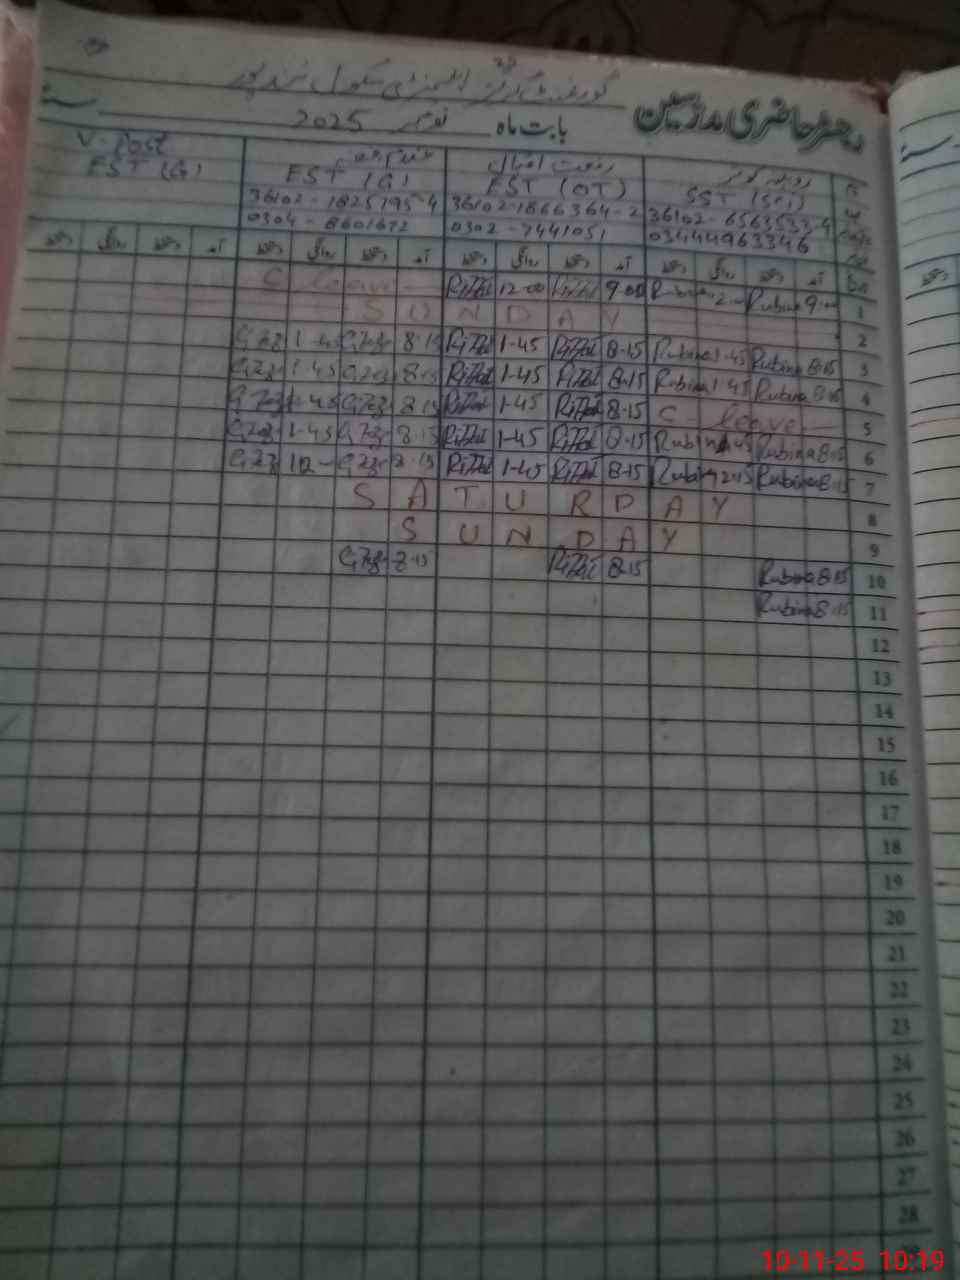 رجسٹر حاضری مدرسین
گورنمنٹ گرلز ایلیمنٹری سکول
بابت ماہ نومبر 2025
روبینہ کوثر
SST (Sci)
36102-6563533-4
03444963346
رفعت اقبال
EST (OT)
36102-1866364-2
0302-7441051
EST (G)
36102-1825795-4
0304-8601672
V-Post
EST (G)
آمد دستخط روانگی دستخط آمد دستخط روانگی دستخط آمد دستخط روانگی دستخط آمد دستخط روانگی دستخط
1 9:00 Rubina Rubina 9:00 12:00 C leave
2 SUNDAY
3 8:15 Rubina 1-45 Rubina 8:15 1-45 8:15 1-45
4 8:15 Rubina 1-45 Rubina 8:15 1-45 8:15 1-45
5 C leave 8:15 1-45 8:15 1-45
6 8:15 Rubina 1-45 Rubina 8:15 1-45 8:15 1-45
7 8:15 Rubina 12:15 Rubina 8:15 1-45 8:15 12
8 SATURDAY
9 SUNDAY
10 8:15 Rubina 8:15 8:15
11 8:15 Rubina
12
13
14
15
16
17
18
19
20
21
22
23
24
25
26
27
28
10-11-25 10:19